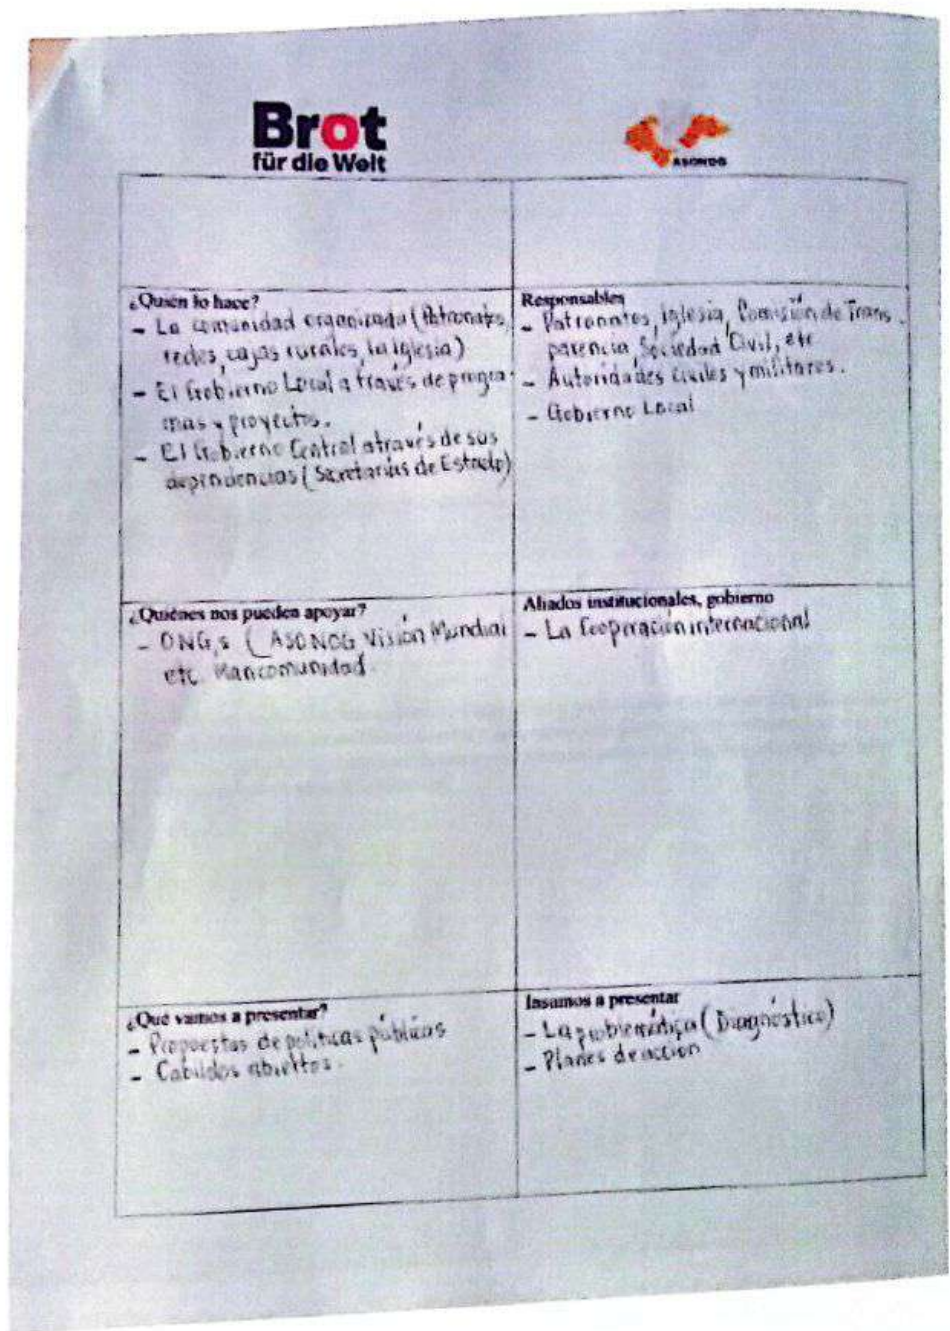 Brot
für die Welt
ASONOG
¿Quién lo hace?
- La comunidad organizada (Patronatos,
redes, cajas rurales, la iglesia)
- El Gobierno Local a través de progra-
mas y proyectos.
- El Gobierno Central através de sus
dependencias (Secretarías de Estado)
Responsables
- Patronatos, Iglesia, Comisión de Trans-
parencia, Sociedad Civil, etc
- Autoridades civiles y militares.
- Gobierno Local
¿Quiénes nos pueden apoyar?
- ONG,s (ASONOG Visión Mundial
etc. Mancomunidad
Aliados institucionales, gobierno
- La Cooperación internacional
¿Qué vamos a presentar?
- Propuestas de políticas públicas
- Cabildos abiertos.
Insumos a presentar
- La problemática (Diagnóstico)
- Planes de acción